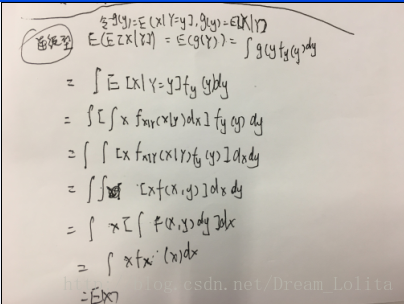 令g(y)=E(X|Y=y],g(Y)=E[X|Y]
连续型 E(E[X|Y]) = E(g(Y)) = ∫g(y)f_Y(y)dy
= ∫ E[X|Y=y]f_Y(y)dy
= ∫[∫x f_{X|Y}(x|y)dx] f_Y(y) dy
= ∫∫[x f_{X|Y}(x|Y)f_Y(y)]dxdy
= ∫∫ [xf(x,y)]dxdy
= ∫ x[∫ f(x,y)dy]dx
= ∫ x f_X(x)dx
=E(X)
http://blog.csdn.net/Dream_Lolita